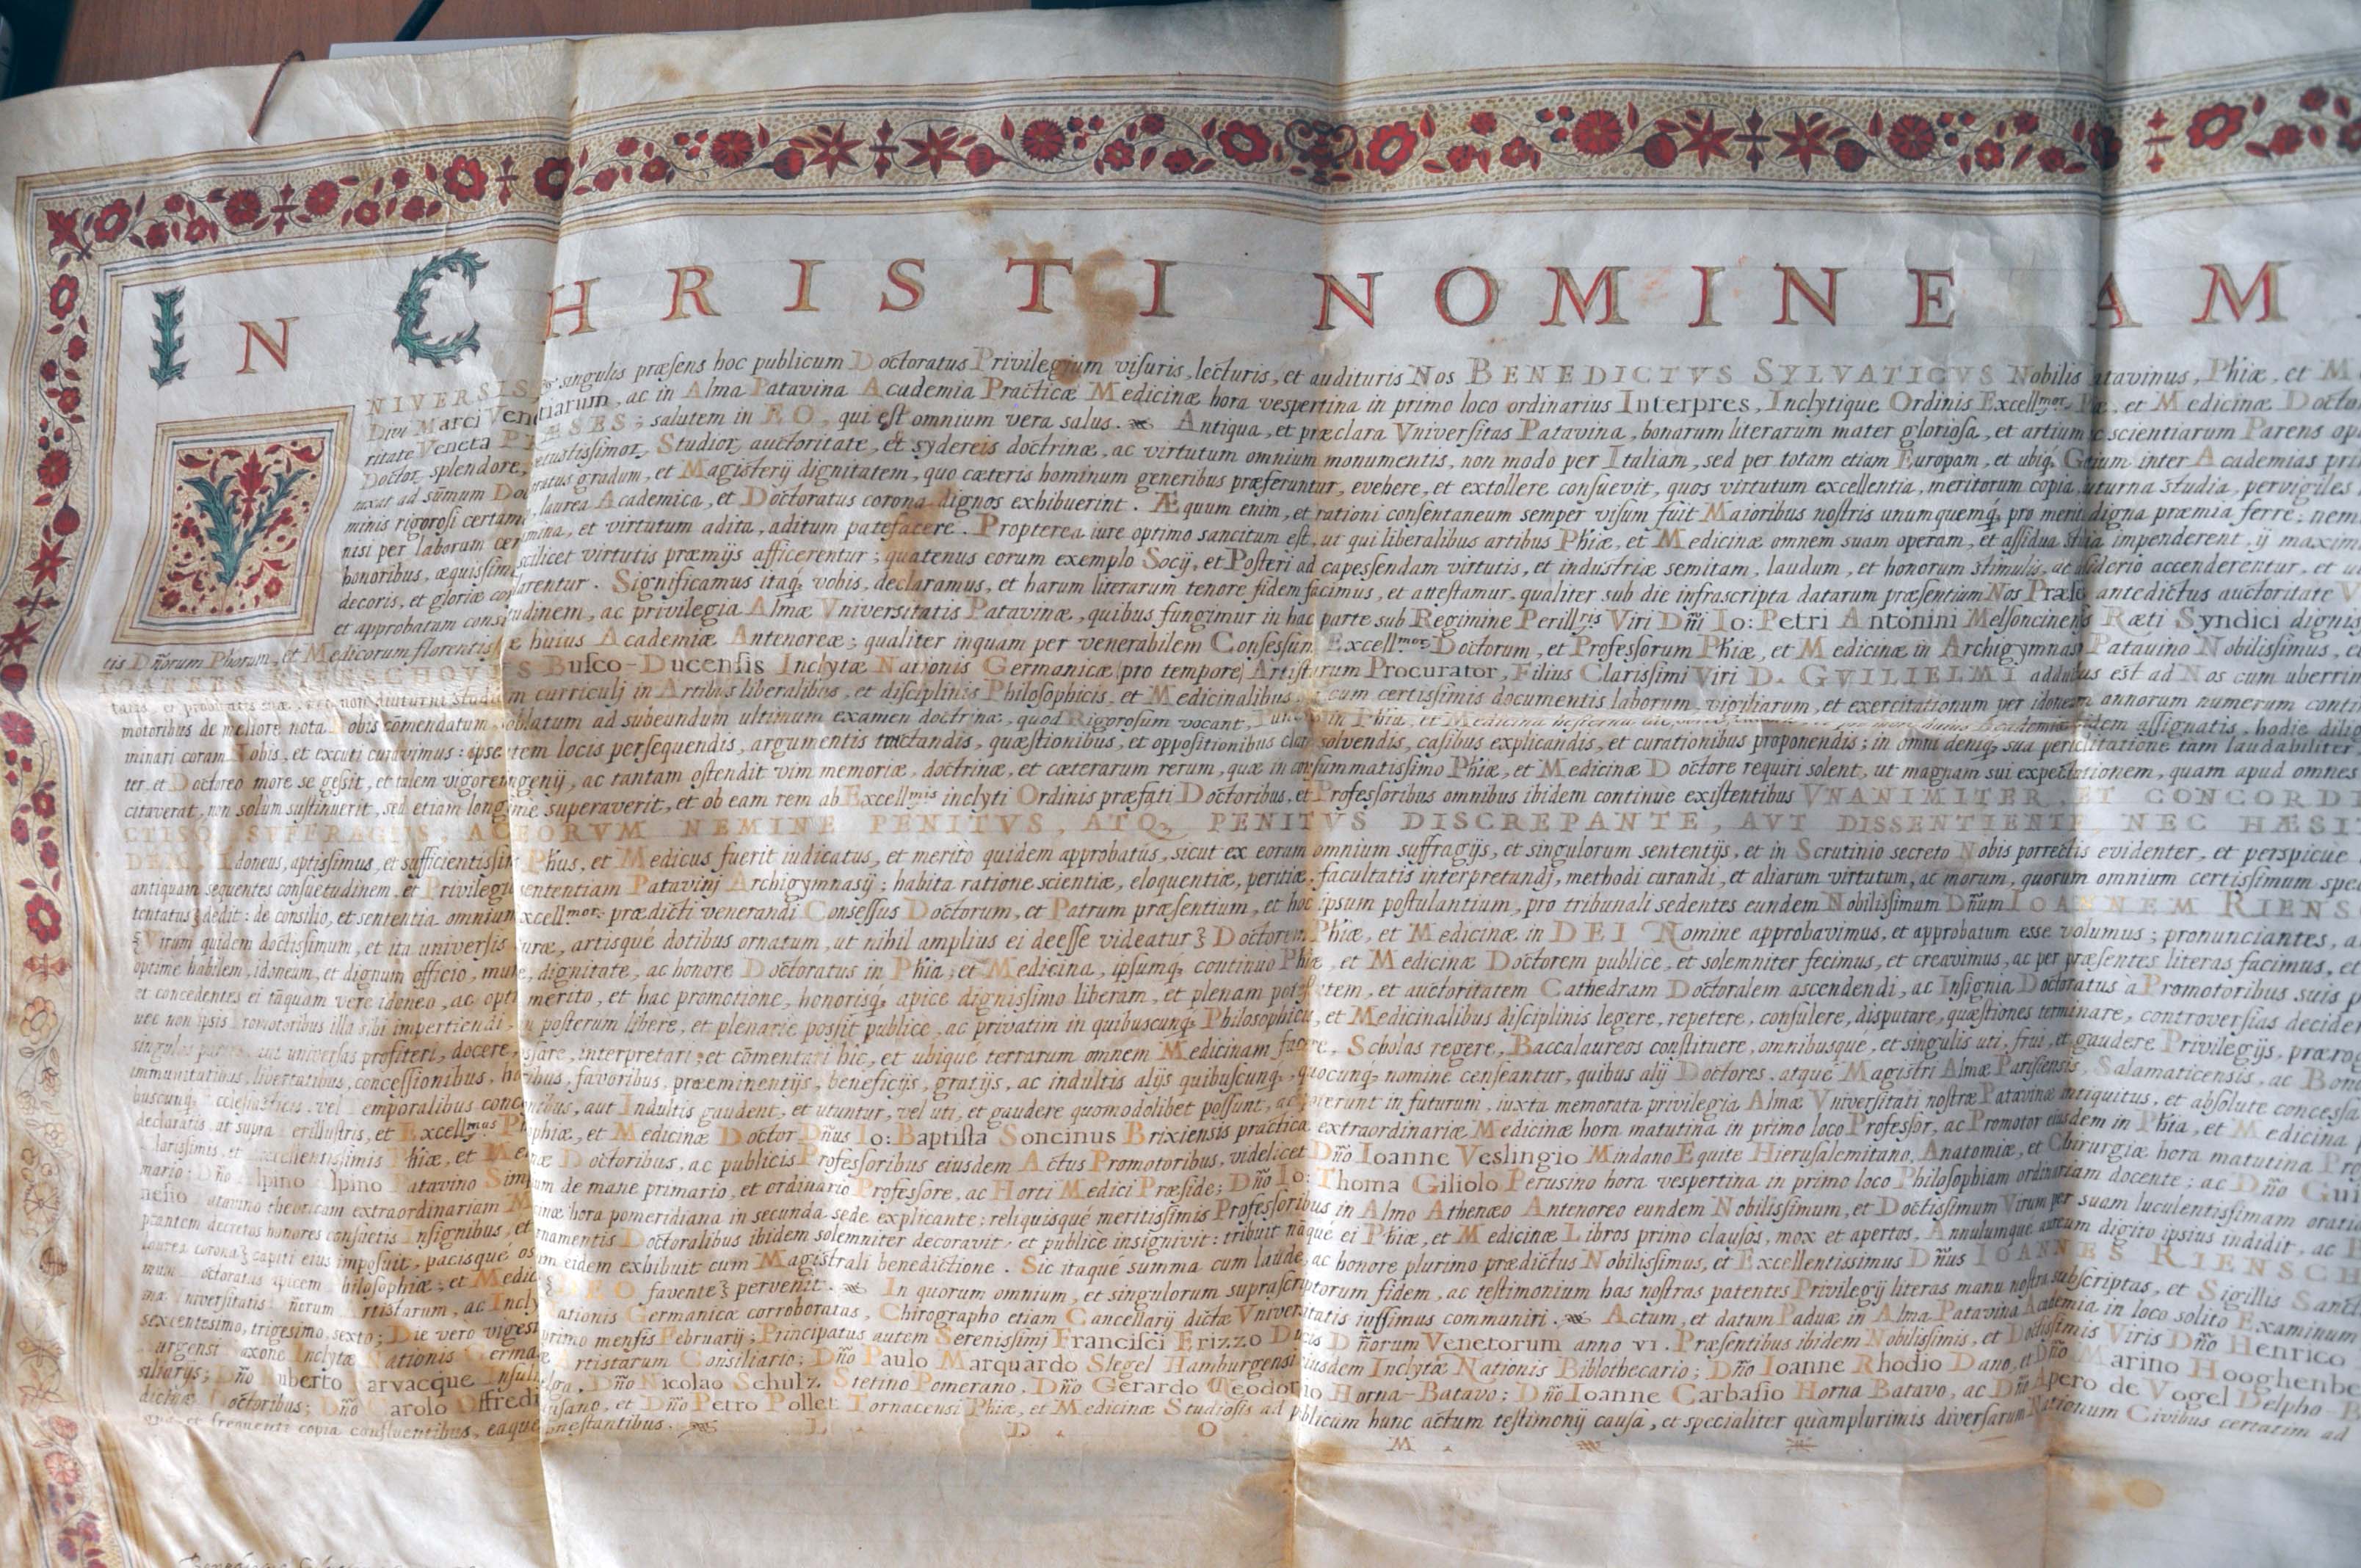 IN CHRISTI NOMINE AM
NIVERSIS, singulis præsens hoc publicum Doctoratus Privilegium visuris, lecturis, et audituris Nos BENEDICTVS SYLVATICVS Nobilis atavinus, Phiæ, et M
Divi Marci Venetiarum, ac in Alma Patavina Academia Practicæ Medicinæ hora vespertina in primo loco ordinarius Interpres, Inclytique Ordinis Excellmor. et Medicinæ Docto
ritate Veneta PRÆSES; salutem in EO, qui est omnium vera salus. Antiqua, et præclara Vniversitas Patavina, bonarum literarum mater gloriosa, et artium scientiarum Parens op
Doctor splendore, vetustissimor Studior auctoritate, et sydereis doctrinæ, ac virtutum omnium monumentis, non modo per Italiam, sed per totam etiam Europam, et ubiq; inter Academias pri
ad sūmum gradum, et Magisterij dignitatem, quo cæteris hominum generibus præferuntur, evehere, et extollere consuevit, quos virtutum excellentia, meritorum copia, uturna studia, pervigiles
minis rigorosi certam laurea Academica, et Doctoratus corona dignos exhibuerint. Æquum enim, et rationi consentaneum semper visum fuit Maioribus nostris unumquemq; pro merit digna præmia ferre; nem
nisi per laborum mina, et virtutum adita, aditum patefacere. Propterea iure optimo sancitum est, ut qui liberalibus artibus Phiæ, et Medicinæ omnem suam operam, et assidua impenderent, ij maxim
honoribus, æquissim scilicet virtutis præmijs afficerentur; quatenus eorum exemplo Socij, et Posteri ad capessendam virtutis, et industriæ semitam, laudum, et honorum stimulis, ac accenderentur, et
decoris, et gloriæ rentur. Significamus itaq; vobis, declaramus, et harum literarum tenore fidem facimus, et attestamur, qualiter sub die infrascripta datarum præsentium Nos Præse antedictus auctoritate V
et approbatam consuetudinem, ac privilegia Almæ Vniversitatis Patavinæ, quibus fungimur in hac parte sub Regimine Perillris Viri Dñi Io: Petri Antonini Melsoncinens Ræti Syndici dignis
tis Dñorum Phorum, et Medicorum florentis huius Academiæ Antenoreæ; qualiter inquam per venerabilem Consessum Excellmor Doctorum, et Professorum Phiæ, et Medicinæ in Archigymnas Patavino Nobilissimus, e
IOANNES RIENSCHOV S Busco-Ducensis Inclytæ Nationis Germanicæ (pro tempore) Artistarum Procurator, Filius Clarissimi Viri D. GVILIELMI adductus est ad Nos cum uberrim
non diuturni stud m curriculj in Artibus liberalibus, et disciplinis Philosophicis, et Medicinalibus cum certissimis documentis laborum, vigiliarum, et exercitationum per idoneum annorum numerum conti
motoribus de meliore nota Nobis cōmendatum, oblatum ad subeundum ultimum examen doctrinæ, quod Rigorosum vocant, in Phia, et Medicina assignatis, hodie dilig
minari coram Nobis, et excuti curavimus: ipse tem locis persequendis, argumentis tractandis, quæstionibus, et oppositionibus solvendis, casibus explicandis, et curationibus proponendis; in omni deniq; sua periclitatione tam laudabiliter,
ter, et Doctoreo more se gessit, et talem vigorem ingenij, ac tantam ostendit vim memoriæ, doctrinæ, et cæterarum rerum, quæ in consummatissimo Phiæ, et Medicinæ Doctore requiri solent, ut magnam sui expectationem, quam apud omnes
citaverat, non solum sustinuerit, sed etiam longissime superaverit, et ob eam rem ab Excellmis inclyti Ordinis præfati Doctoribus, et Professoribus omnibus ibidem continue existentibus VNANIMITER, ET CONCORDI
CTISQ SVFFRAGIIS, AC EORVM NEMINE PENITVS, ATQ; PENITVS DISCREPANTE, AVT DISSENTIENTE, NEC HÆSIT
Idoneus, aptissimus, et sufficientissim Phus, et Medicus fuerit iudicatus, et merito quidem approbatus, sicut ex eorum omnium suffragijs, et singulorum sententijs, et in Scrutinio secreto Nobis porrectis evidenter, et perspicue
antiquam sequentes consuetudinem, et Privilegi sententiam Patavinj Archigymnasij; habita ratione scientiæ, eloquentiæ, peritiæ, facultatis interpretandj, methodi curandi, et aliarum virtutum, ac morum, quorum omnium certissimum spe
dedit: de consilio, et sententia omnium xcellmor. prædicti venerandi Consessus Doctorum, et Patrum præsentium, et hoc ipsum postulantium, pro tribunali sedentes eundem Nobilissimum Dñum IOANNEM RIENS
Virum quidem doctissimum, et ita universis uræ, artisque dotibus ornatum, ut nihil amplius ei deesse videatur Doctorem Phiæ, et Medicinæ in DEI Nomine approbavimus, et approbatum esse volumus; pronunciantes, a
optime habilem, idoneum, et dignum officio, mune, dignitate, ac honore Doctoratus in Phia, et Medicina, ipsumq; continuo Phiæ, et Medicinæ Doctorem publice, et solemniter fecimus, et creavimus, ac per præsentes literas facimus, et
et concedentes ei tāquam vere idoneo, ac opti merito, et hac promotione, honorisq; apice dignissimo liberam, et plenam potestatem, et auctoritatem Cathedram Doctoralem ascendendi, ac Insignia Doctoratus a Promotoribus suis p
nec non ipsis Promotoribus illa sibi impertiendi, posterum libere, et plenarie possit publice, ac privatim in quibuscunq; Philosophicis, et Medicinalibus disciplinis legere, repetere, consulere, disputare, quæstiones terminare, controversias decider
singulas aut universas profiteri, docere, interpretari, et cōmentari hic, et ubique terrarum omnem Medicinam facere, Scholas regere, Baccalaureos constituere, omnibusque, et singulis uti, frui, et gaudere Privilegijs, prærog
immunitatibus, libertatibus, concessionibus, ho ibus, favoribus, præeminentijs, beneficijs, gratijs, ac indultis alijs quibuscunq; quocunq; nomine censeantur, quibus alij Doctores, atque Magistri Almæ Parisiensis, Salamaticensis, ac Bono
buscunq; Ecclesiasticis, vel Temporalibus conc ibus, aut Indultis gaudent, et utuntur, vel uti, et gaudere quomodolibet possunt, ac poterunt in futurum, iuxta memorata privilegia Almæ Vniversitati nostræ Patavinæ antiquitus, et absolute concessa
declaratis, at supra Perillustris, et Excellmus Phiæ, et Medicinæ Doctor Dñus Io: Baptista Soncinus Brixiensis practicæ extraordinariæ Medicinæ hora matutina in primo loco Professor, ac Promotor eiusdem in Phia, et Medicina
larissimis, et Excellentissimis Phiæ, et Me næ Doctoribus, ac publicis Professoribus eiusdem Actus Promotoribus, videlicet Dño Ioanne Veslingio Mindano Equite Hierusalemitano, Anatomiæ, et Chirurgiæ hora matutina Pro
mario; Dño Alpino Alpino Patavino Simp um de mane primario, et ordinario Professore, ac Horti Medici Præside; Dño Io: Thoma Giliolo Perusino hora vespertina in primo loco Philosophiam ordinariam docente; ac Dño Gui
Patavino theoricam extraordinariam M inæ hora pomeridiana in secunda sede explicante: reliquisque meritissimis Professoribus in Almo Athenæo Antenoreo eundem Nobilissimum, et Doctissimum Virum per suam luculentissimam orati
decretos honores consuetis Insignibus, et ornamentis Doctoralibus ibidem solemniter decoravit, et publice insignivit: tribuit nāque ei Phiæ, et Medicinæ Libros primo clausos, mox et apertos. Annulumque aureum digito ipsius indidit, ac B
laurea corona capiti eius imposuit, pacisque os m eidem exhibuit cum Magistrali benedictione. Sic itaque summa cum laude, ac honore plurimo prædictus Nobilissimus, et Excellentissimus Dñus IOANNES RIENSCH
mum Doctoratus apicem Philosophiæ, et Medic DEO favente pervenit. In quorum omnium, et singulorum suprascriptorum fidem, ac testimonium has nostras patentes Privilegij literas manu nostra subscriptas, et Sigillis Sanct
mæ Vniversitatis Dñorum Artistarum, ac Incly ationis Germanicæ corroboratas, Chirographo etiam Cancellarij dictæ Vniversitatis iussimus communiri. Actum, et datum Paduæ in Alma Patavina Academia in loco solito Examinum
sexcentesimo, trigesimo, sexto; Die vero vigesi primo mensis Februarij; Principatus autem Serenissimj Francisci Erizzo Ducis Dñorum Venetorum anno VI. Præsentibus ibidem Nobilissimis, et Doctissimis Viris Dño Henrico
urgensi Saxone Inclytæ Nationis Germa Artistarum Consiliario; Dño Paulo Marquardo Slegel Hamburgensi eiusdem Inclytæ Nationis Bibliothecario; Dño Ioanne Rhodio Dano, et Dño Marino Hooghenbe
siliarijs; Dño Ruberto Farvacque Insul Dño Nicolao Schulz. Stetino Pomerano, Dño Gerardo Theodor Horna-Batavo; Dño Ioanne Carbasio Horna Batavo, ac Dño Apero de Vogel Delpho-B
dictæ Doctoribus; Dño Carolo Offredi et Dño Petro Pollet Tornacensi Phiæ, et Medicinæ Studiosis ad publicum hunc actum testimonij causa, et specialiter quamplurimis diversarum Nationum Civibus certatim ad
et frequenti copia confluentibus, eaque onestantibus. L. D. O. M.